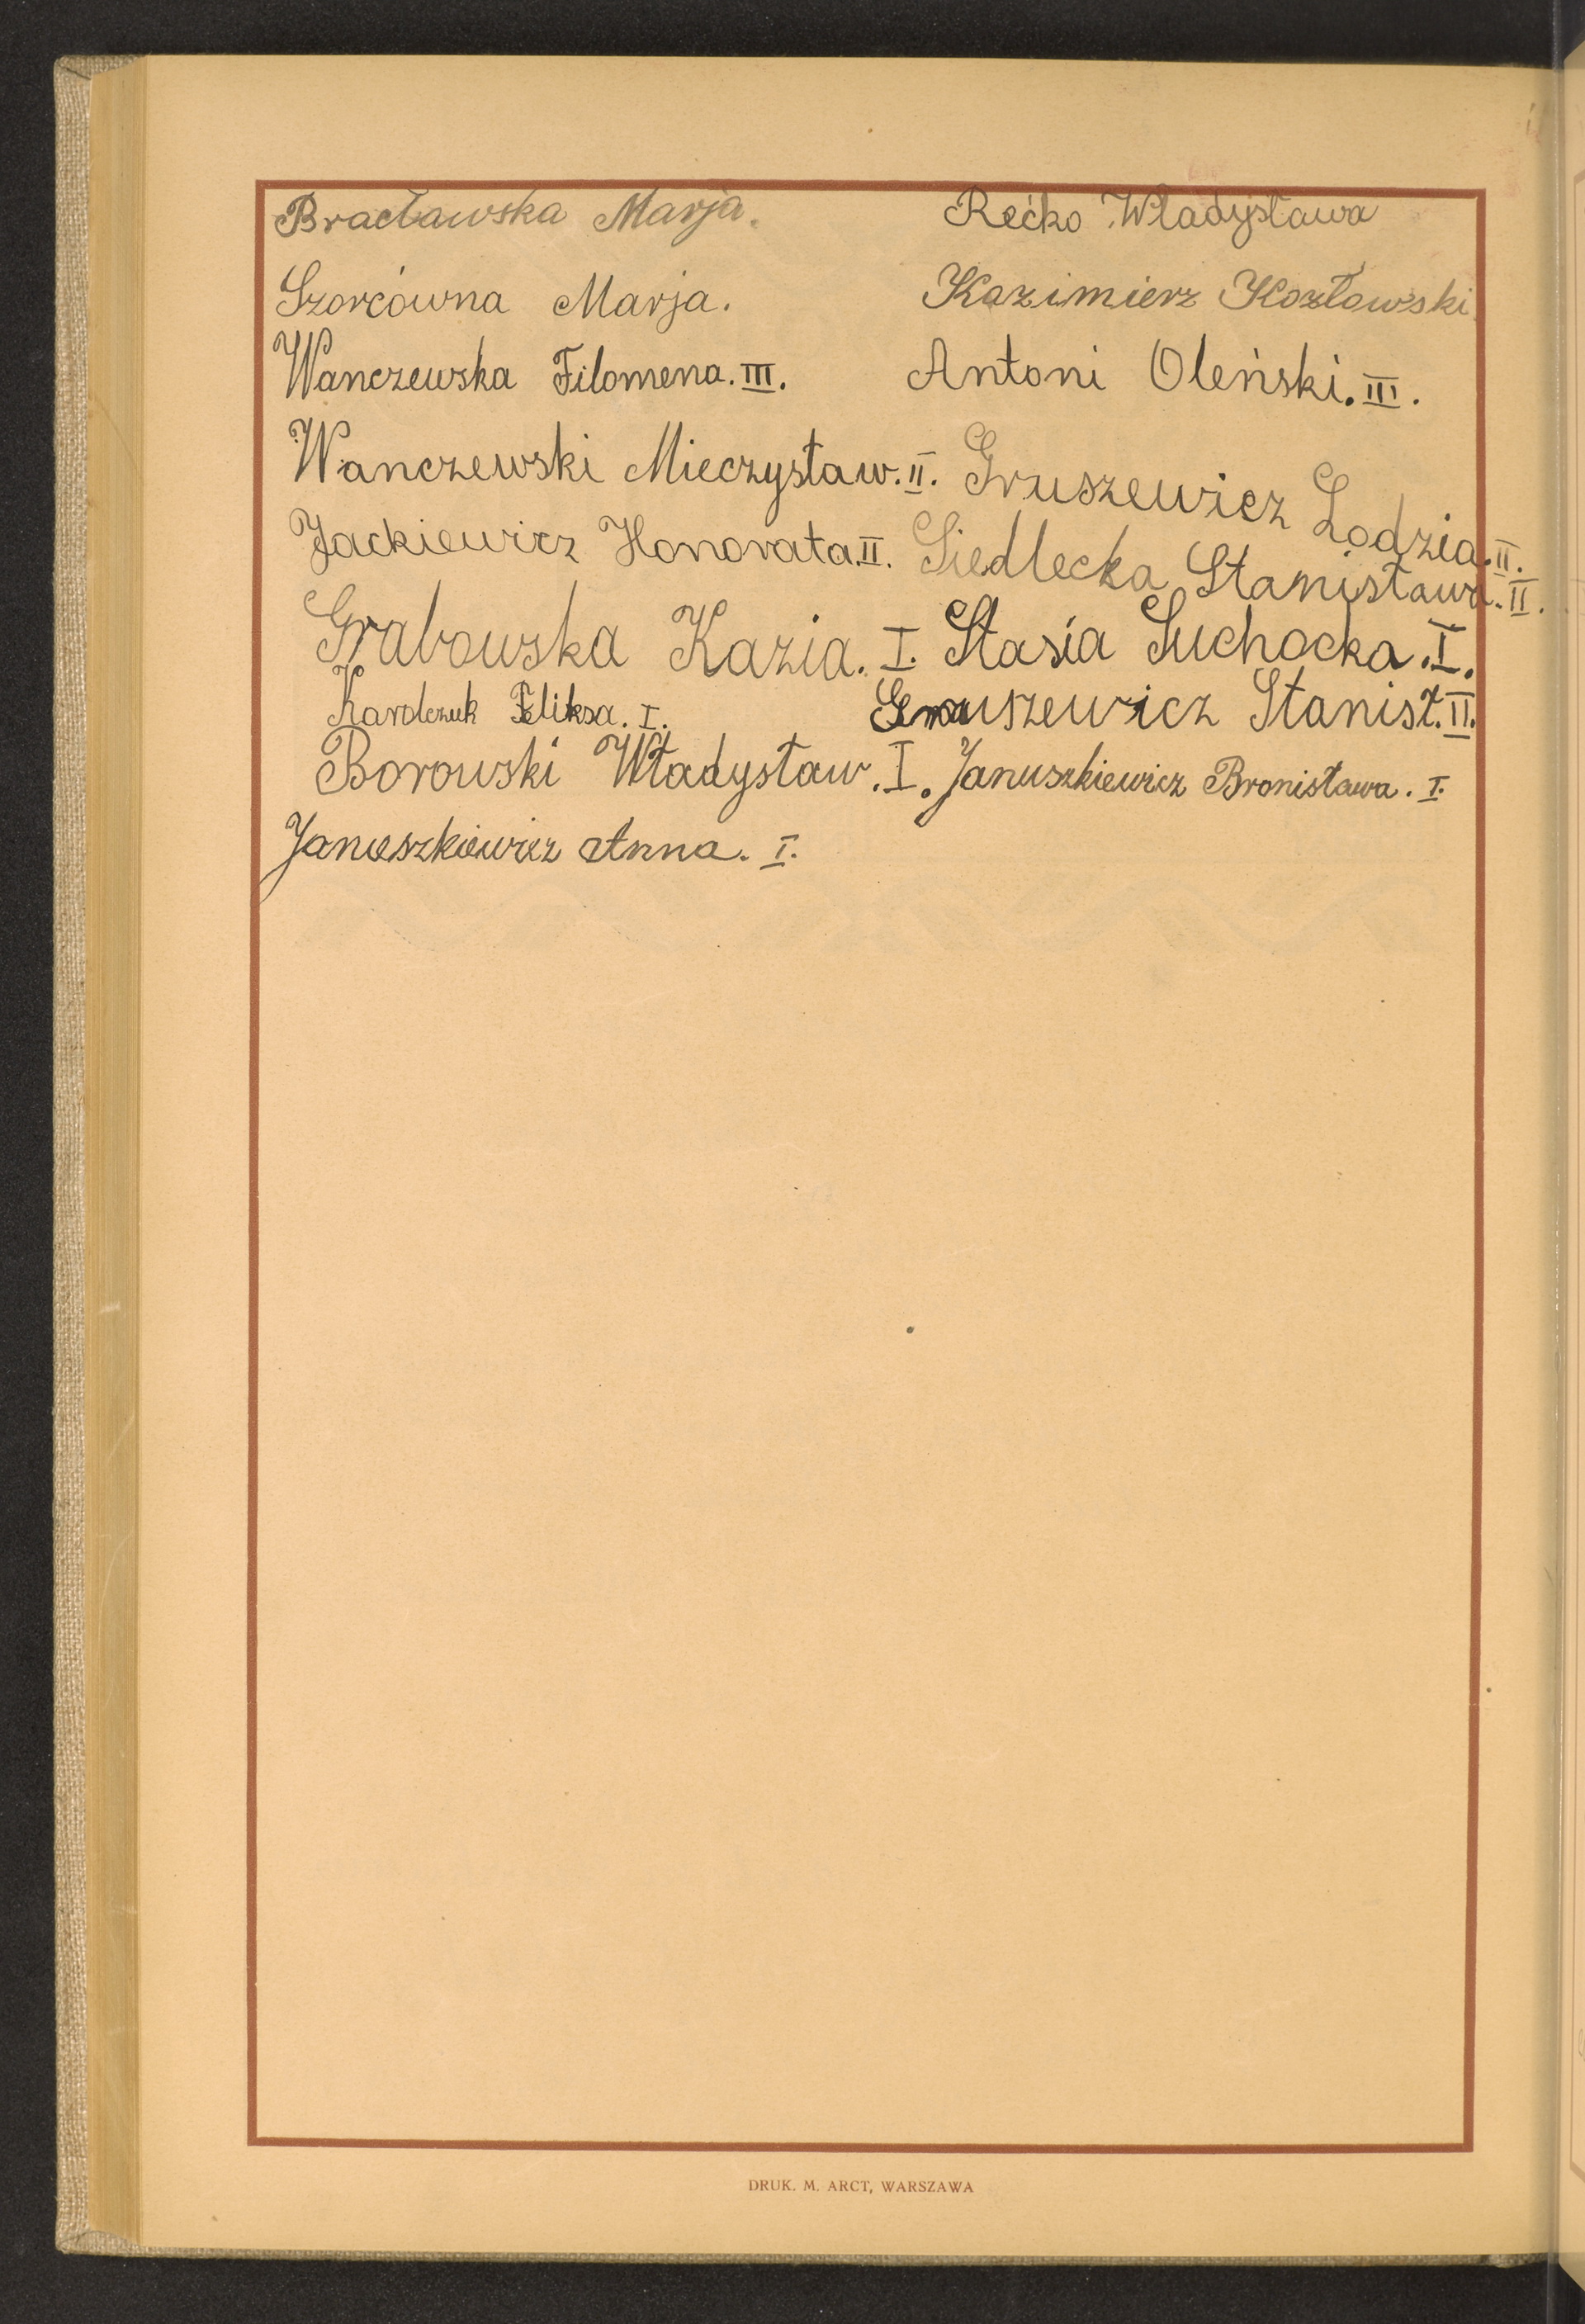 Bracławska Marja. Rećko Władysława
Szorcówna Marja. Kazimierz Kozłowski
Wanczewska Filomena. III. Antoni Oleński. III.
Wanczewski Mieczysław. II. Gruszewicz Lodzia. II.
Jackiewicz Honorata. II. Siedlecka Stanisława. II.
Grabowska Kazia. I. Stasia Suchocka. I.
Karolczuk Feliksa. I. Gruszewicz Stanisł. II.
Borowski Władysław. I. Januszkiewicz Bronisława. I.
Januszkiewicz Anna. I.
DRUK. M. ARCT, WARSZAWA